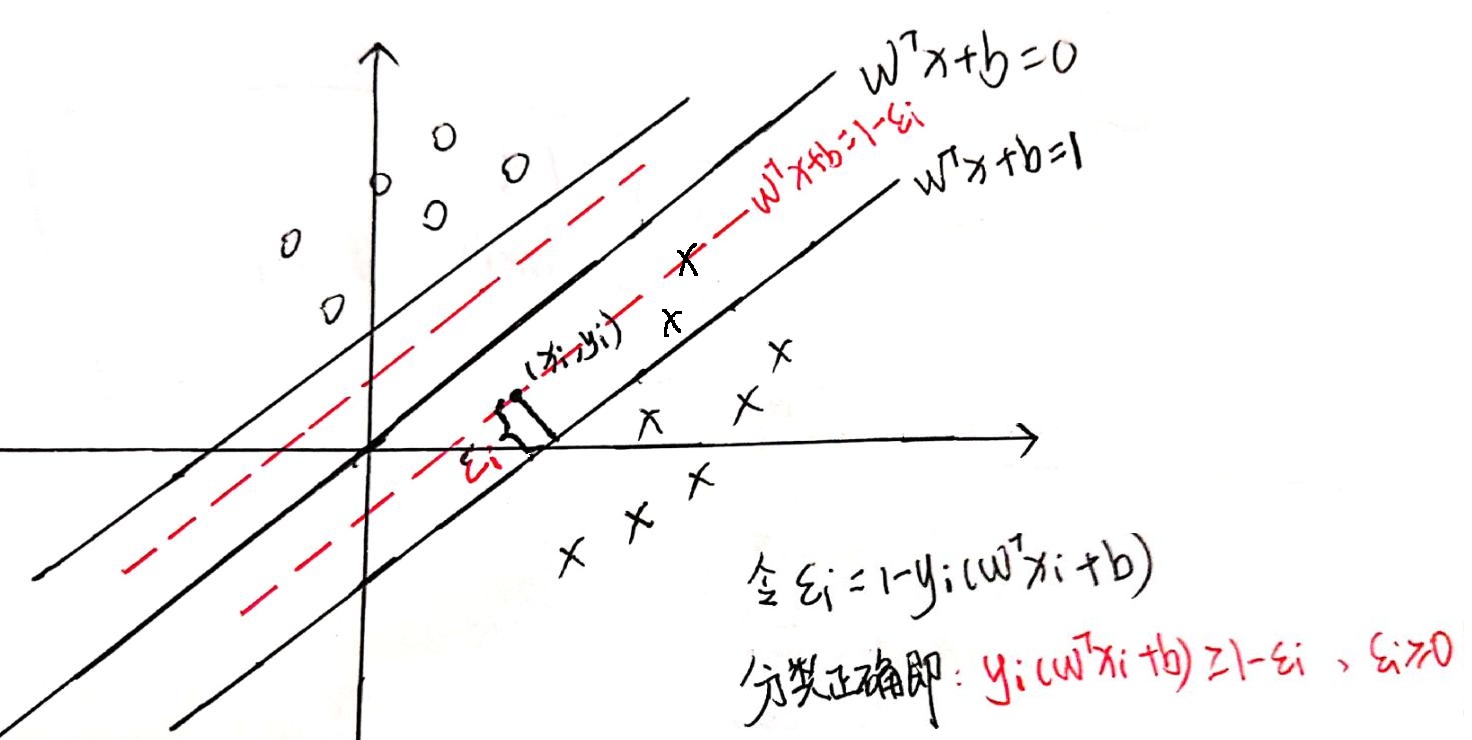 W^T x+b=0
w^T x+b=1-ξi
w^T x+b=1
(xi,yi)
ξi
令 ξi = 1-yi(w^T xi+b)
分类正确即: yi(w^T xi+b)≥1-ξi、ξi≥0